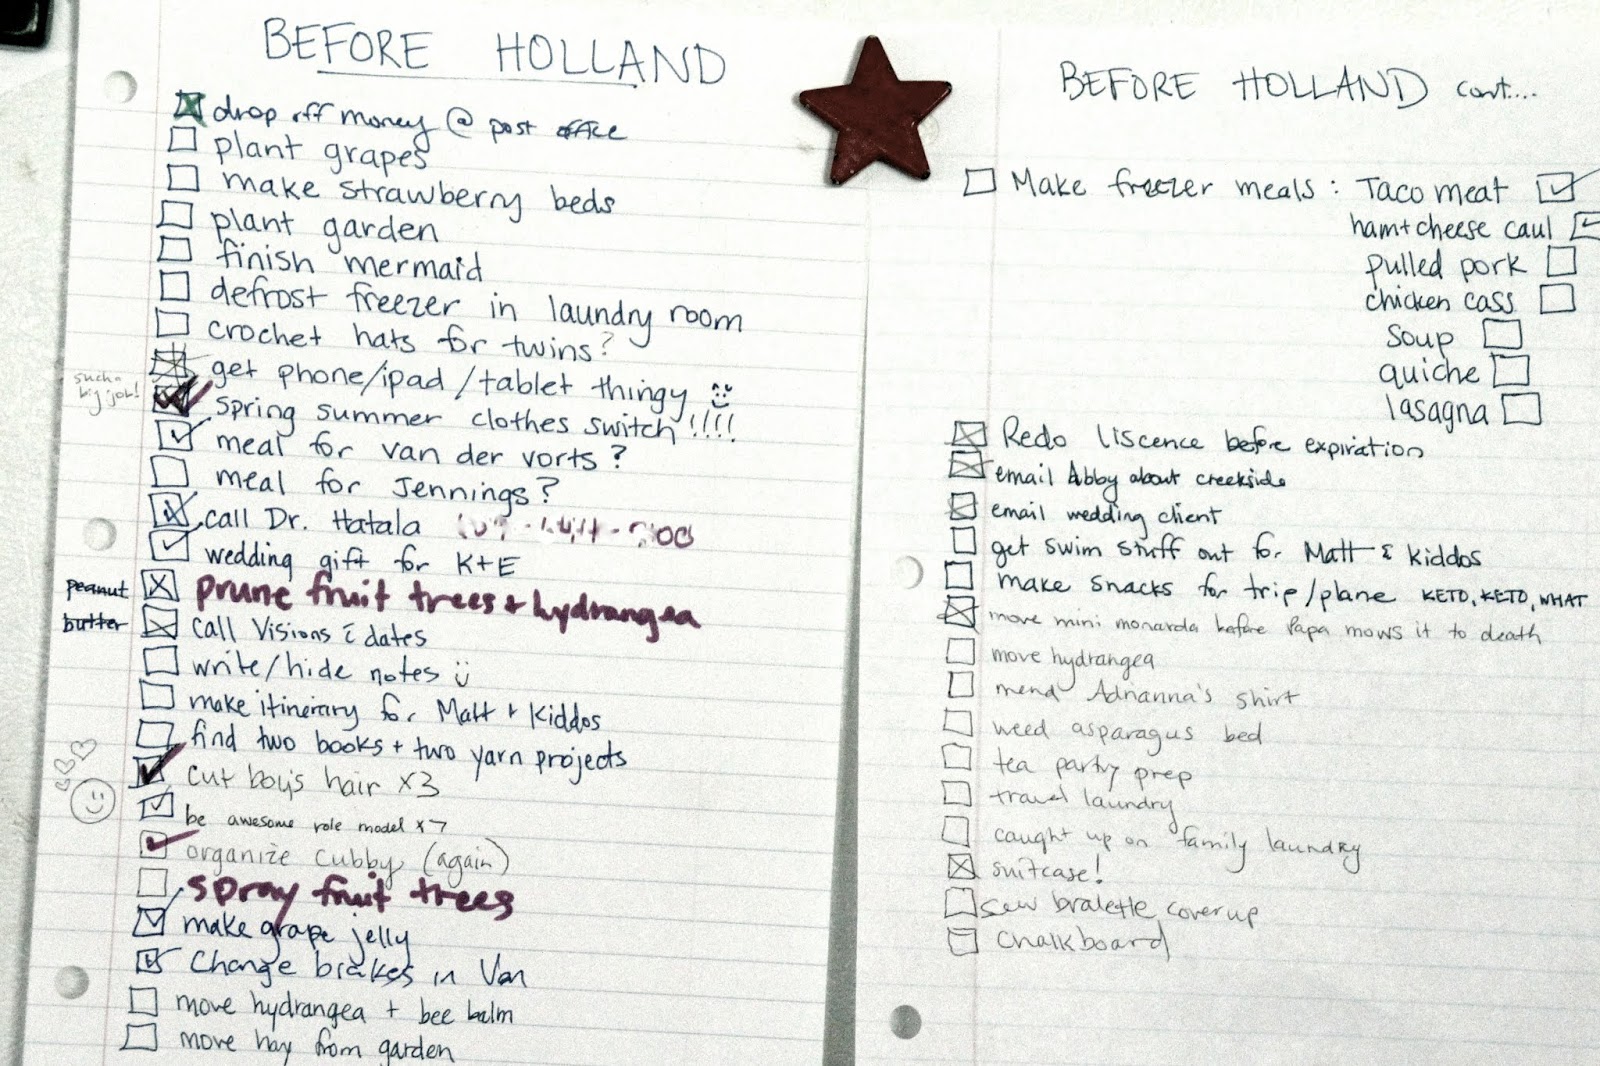 BEFORE HOLLAND
drop off money @ post office
plant grapes
make strawberry beds
plant garden
finish mermaid
defrost freezer in laundry room
crochet hats for twins?
get phone/ipad/tablet thingy
such a
big job!
spring summer clothes switch!!!!
meal for van der vorts?
meal for Jennings?
call Dr. Hatala
wedding gift for K+E
peanut
butter
prune fruit trees + hydrangea
call Visions c̄ dates
write/hide notes
make itinerary for Matt + Kiddos
find two books + two yarn projects
cut boys hair x3
be awesome role model x7
organize cubby (again)
spray fruit trees
make grape jelly
Change brakes in Van
move hydrangea + bee balm
move hay from garden
BEFORE HOLLAND cont....
Make freezer meals: Taco meat
ham+cheese caul
pulled pork
chicken cass
soup
quiche
lasagna
Redo liscence before expiration
email Abby about creekside
email wedding client
get swim stuff out for Matt & Kiddos
make snacks for trip/plane KETO, KETO, WHAT
move mini monarda before Papa mows it to death
move hydrangea
mend Adrianna's shirt
weed asparagus bed
tea party prep
travel laundry
caught up on family laundry
suitcase!
sew bralette coverup
Chalkboard